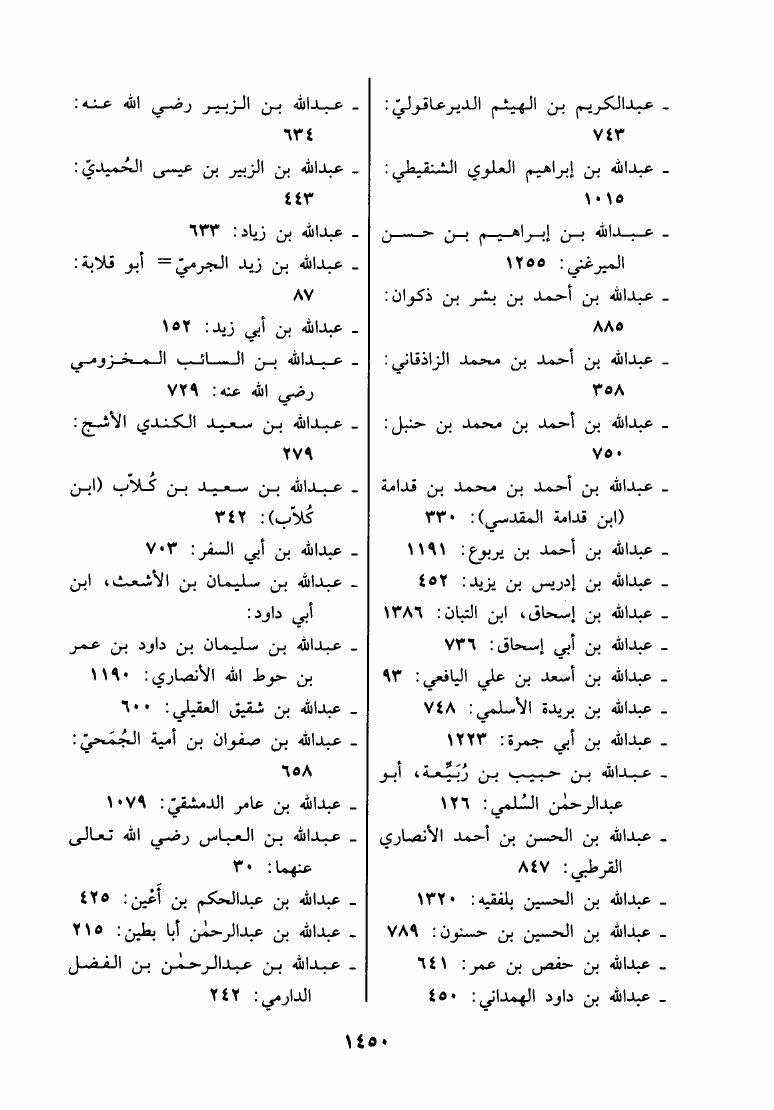 - عبدالكريم بن الهيثم الديرعاقوليّ:
٧٤٣
- عبدالله بن إبراهيم العلوي الشنقيطي:
١٠١٥
- عبدالله بن إبراهيم بن حسن
الميرغني: ١٢٥٥
- عبدالله بن أحمد بن بشر بن ذكوان:
٨٨٥
- عبدالله بن أحمد بن محمد الزاذقاني:
٣٥٨
- عبدالله بن أحمد بن محمد بن حنبل:
٧٥٠
- عبدالله بن أحمد بن محمد بن قدامة
(ابن قدامة المقدسي): ٣٣٠
- عبدالله بن أحمد بن يربوع: ١١٩١
- عبدالله بن إدريس بن يزيد: ٤٥٢
- عبدالله بن إسحاق، ابن التبان: ١٣٨٦
- عبدالله بن أبي إسحاق: ٧٣٦
- عبدالله بن أسعد بن علي اليافعي: ٩٣
- عبدالله بن بريدة الأسلمي: ٧٤٨
- عبدالله بن أبي جمرة: ١٢٢٣
- عبدالله بن حبيب بن رُبَيِّعة، أبو
عبدالرحمٰن السُلمي: ١٢٦
- عبدالله بن الحسن بن أحمد الأنصاري
القرطبي: ٨٤٧
- عبدالله بن الحسين بلفقيه: ١٣٢٠
- عبدالله بن الحسين بن حسنون: ٧٨٩
- عبدالله بن حفص بن عمر: ٦٤١
- عبدالله بن داود الهمداني: ٤٥٠
- عبدالله بن الزبير رضي الله عنه:
٦٣٤
- عبدالله بن الزبير بن عيسى الحُميديّ:
٤٤٣
- عبدالله بن زياد: ٦٣٣
- عبدالله بن زيد الجرميّ = أبو قلابة:
٨٧
- عبدالله بن أبي زيد: ١٥٢
- عبدالله بن السائب المخزومي
رضي الله عنه: ٧٢٩
- عبدالله بن سعيد الكندي الأشج:
٢٧٩
- عبدالله بن سعيد بن كُلاّب (ابن
كُلاّب): ٣٤٢
- عبدالله بن أبي السفر: ٧٠٣
- عبدالله بن سليمان بن الأشعث، ابن
أبي داود:
- عبدالله بن سليمان بن داود بن عمر
بن حوط الله الأنصاري: ١١٩٠
- عبدالله بن شقيق العقيلي: ٦٠٠
- عبدالله بن صفوان بن أمية الجُمَحيّ:
٦٥٨
- عبدالله بن عامر الدمشقيّ: ١٠٧٩
- عبدالله بن العباس رضي الله تعالى
عنهما: ٣٠
- عبدالله بن عبدالحكم بن أَعْين: ٤٢٥
- عبدالله بن عبدالرحمٰن أبا بطين: ٢١٥
- عبدالله بن عبدالرحمٰن بن الفضل
الدارمي: ٢٤٢
١٤٥٠